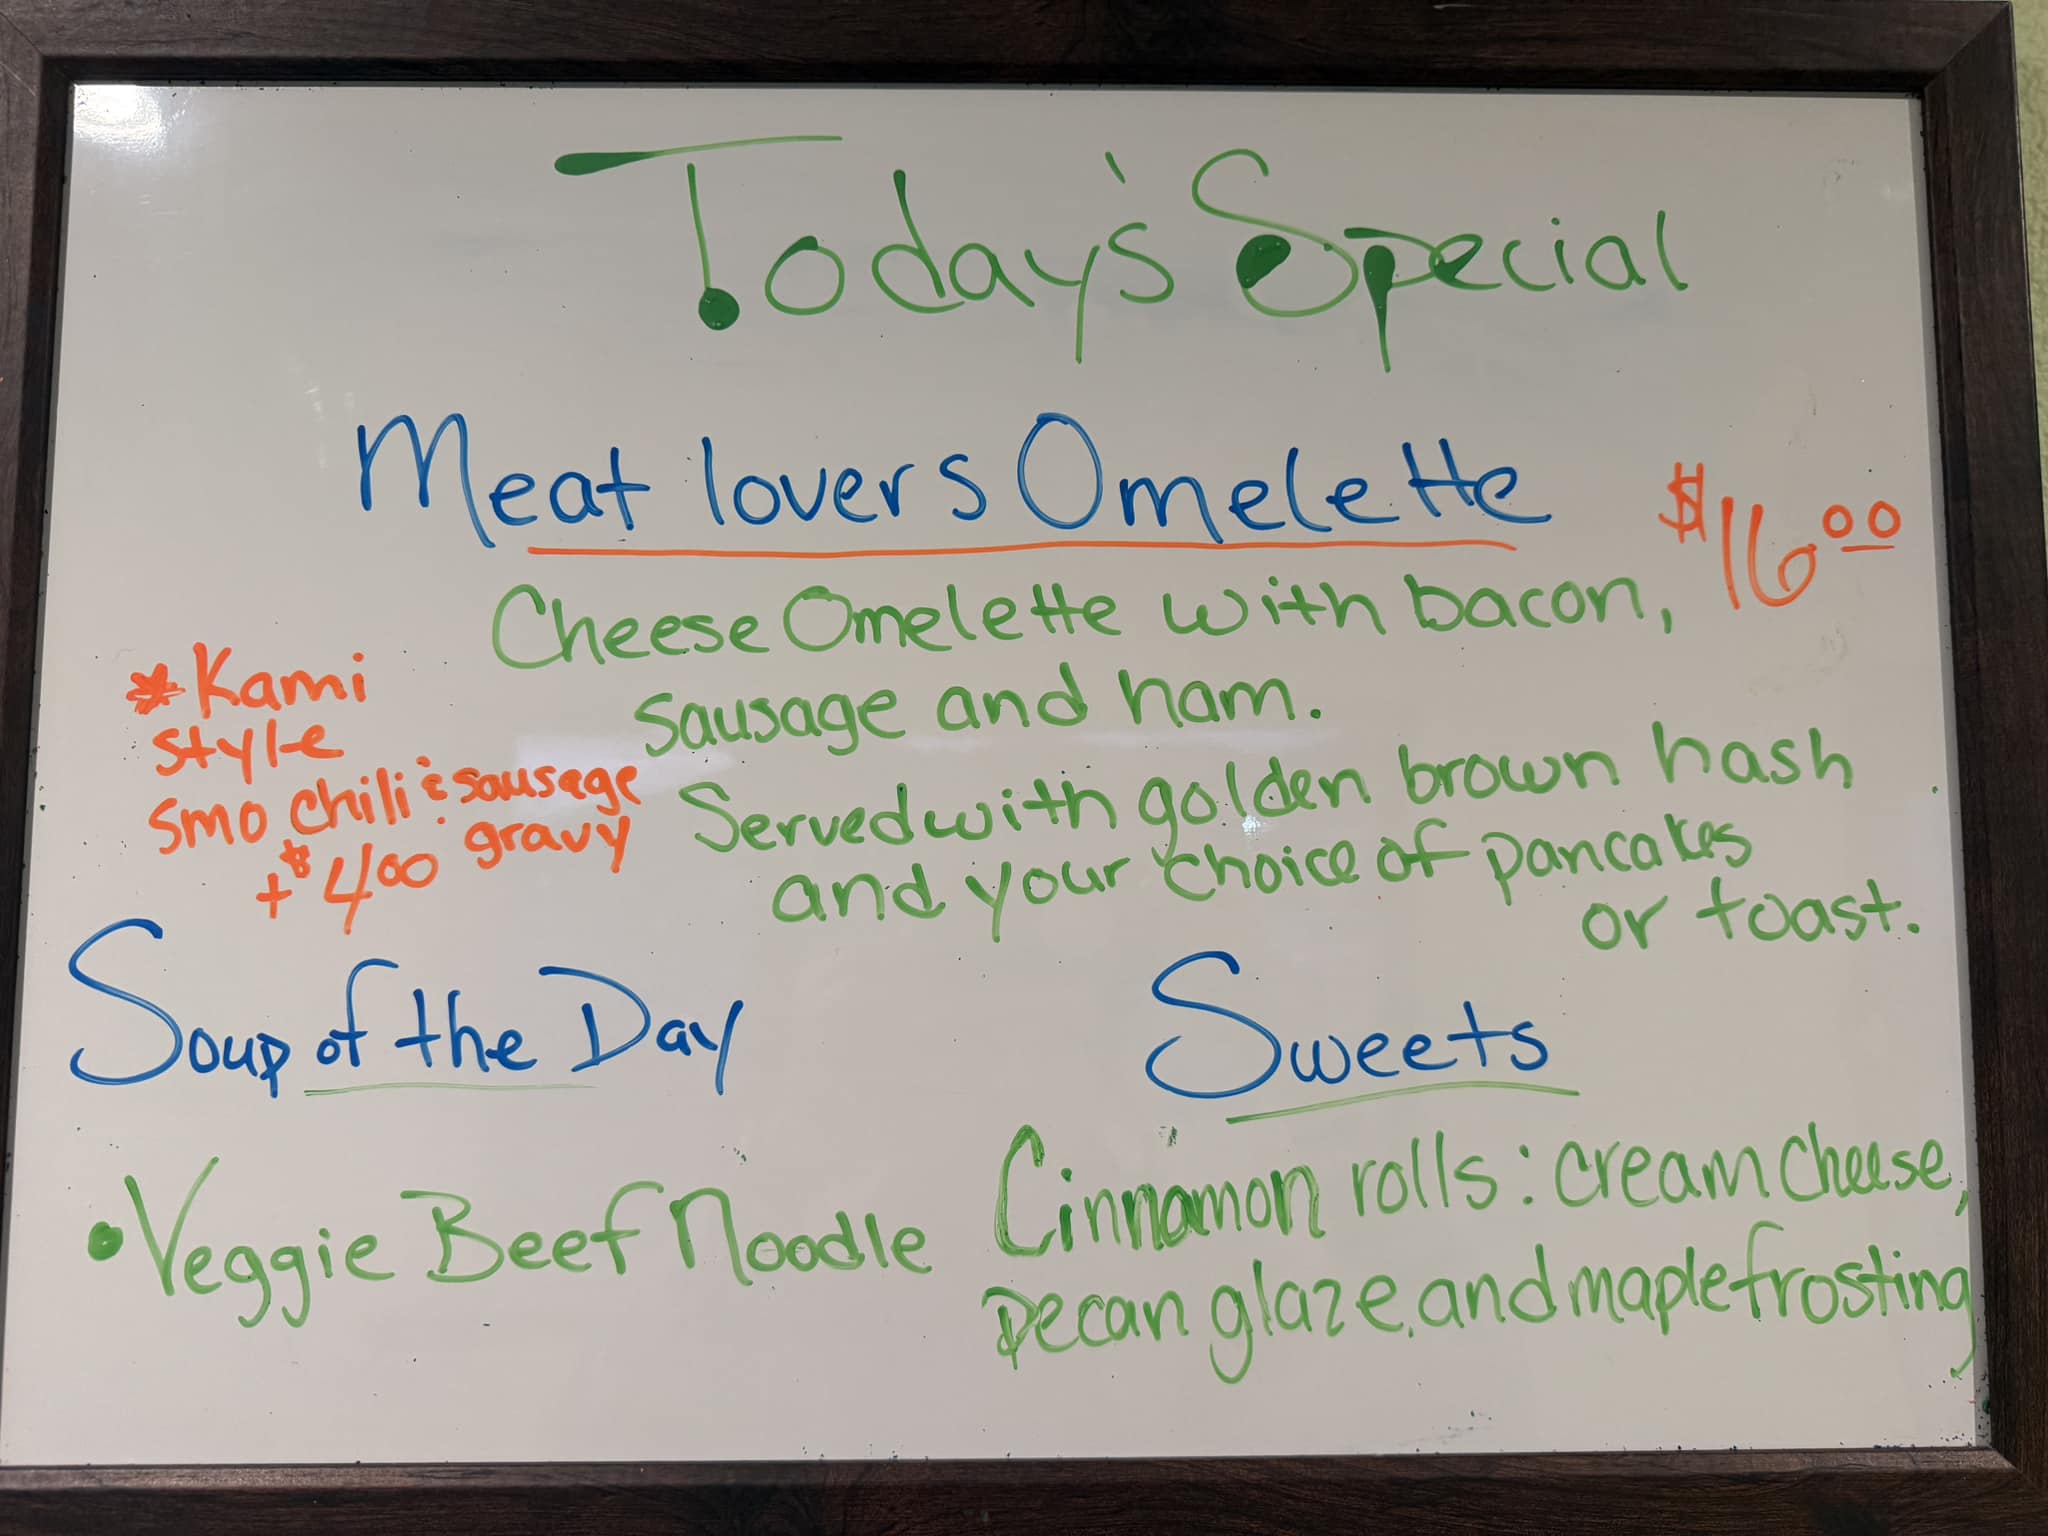 Today's Special
Meat lovers Omelette
$16.00
Cheese Omelette with bacon,
sausage and ham.
Served with golden brown hash
and your choice of pancakes
or toast.
*Kami
style
smo chili & sausage
gravy
+$4.00
Soup of the Day
• Veggie Beef Noodle
Sweets
Cinnamon rolls: cream cheese,
pecan glaze, and maple frosting